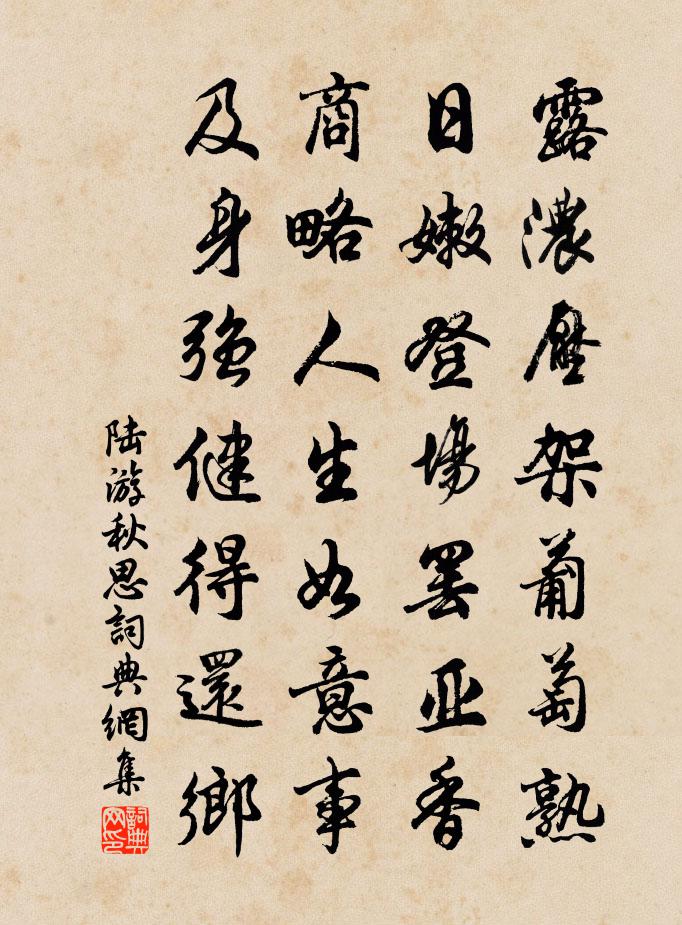 露濃壓架葡萄熟
日嫩登場罷亞香
商略人生如意事
及身強健得還鄉
陆游秋思詞典網集
詞典
网印